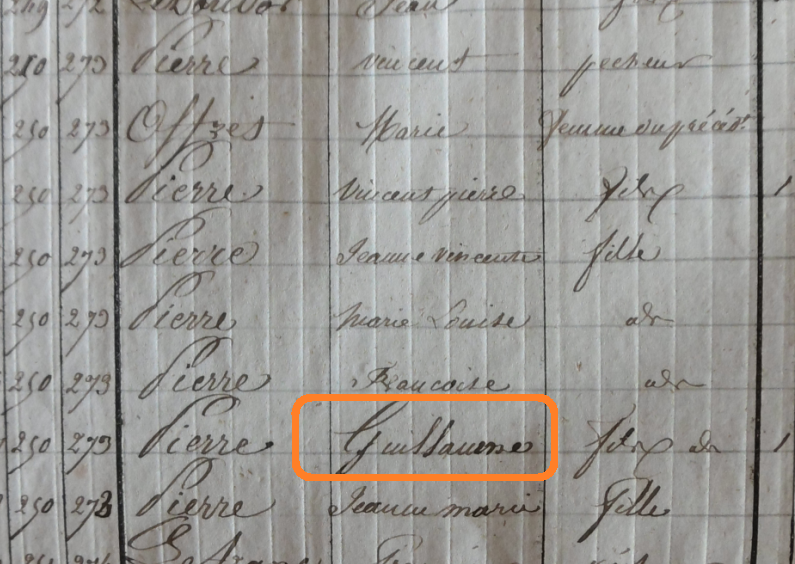 249 272 Jean
250 273 Pierre vincent pecheur
250 273 Offret Marie femme du précédt
250 273 Pierre vincent pierre fils 1
250 273 Pierre Jeanne vincente fille
250 273 Pierre Marie Louise do
250 273 Pierre Francoise do
250 273 Pierre Guillaume fils do 1
250 273 Pierre Jeanne marie fille